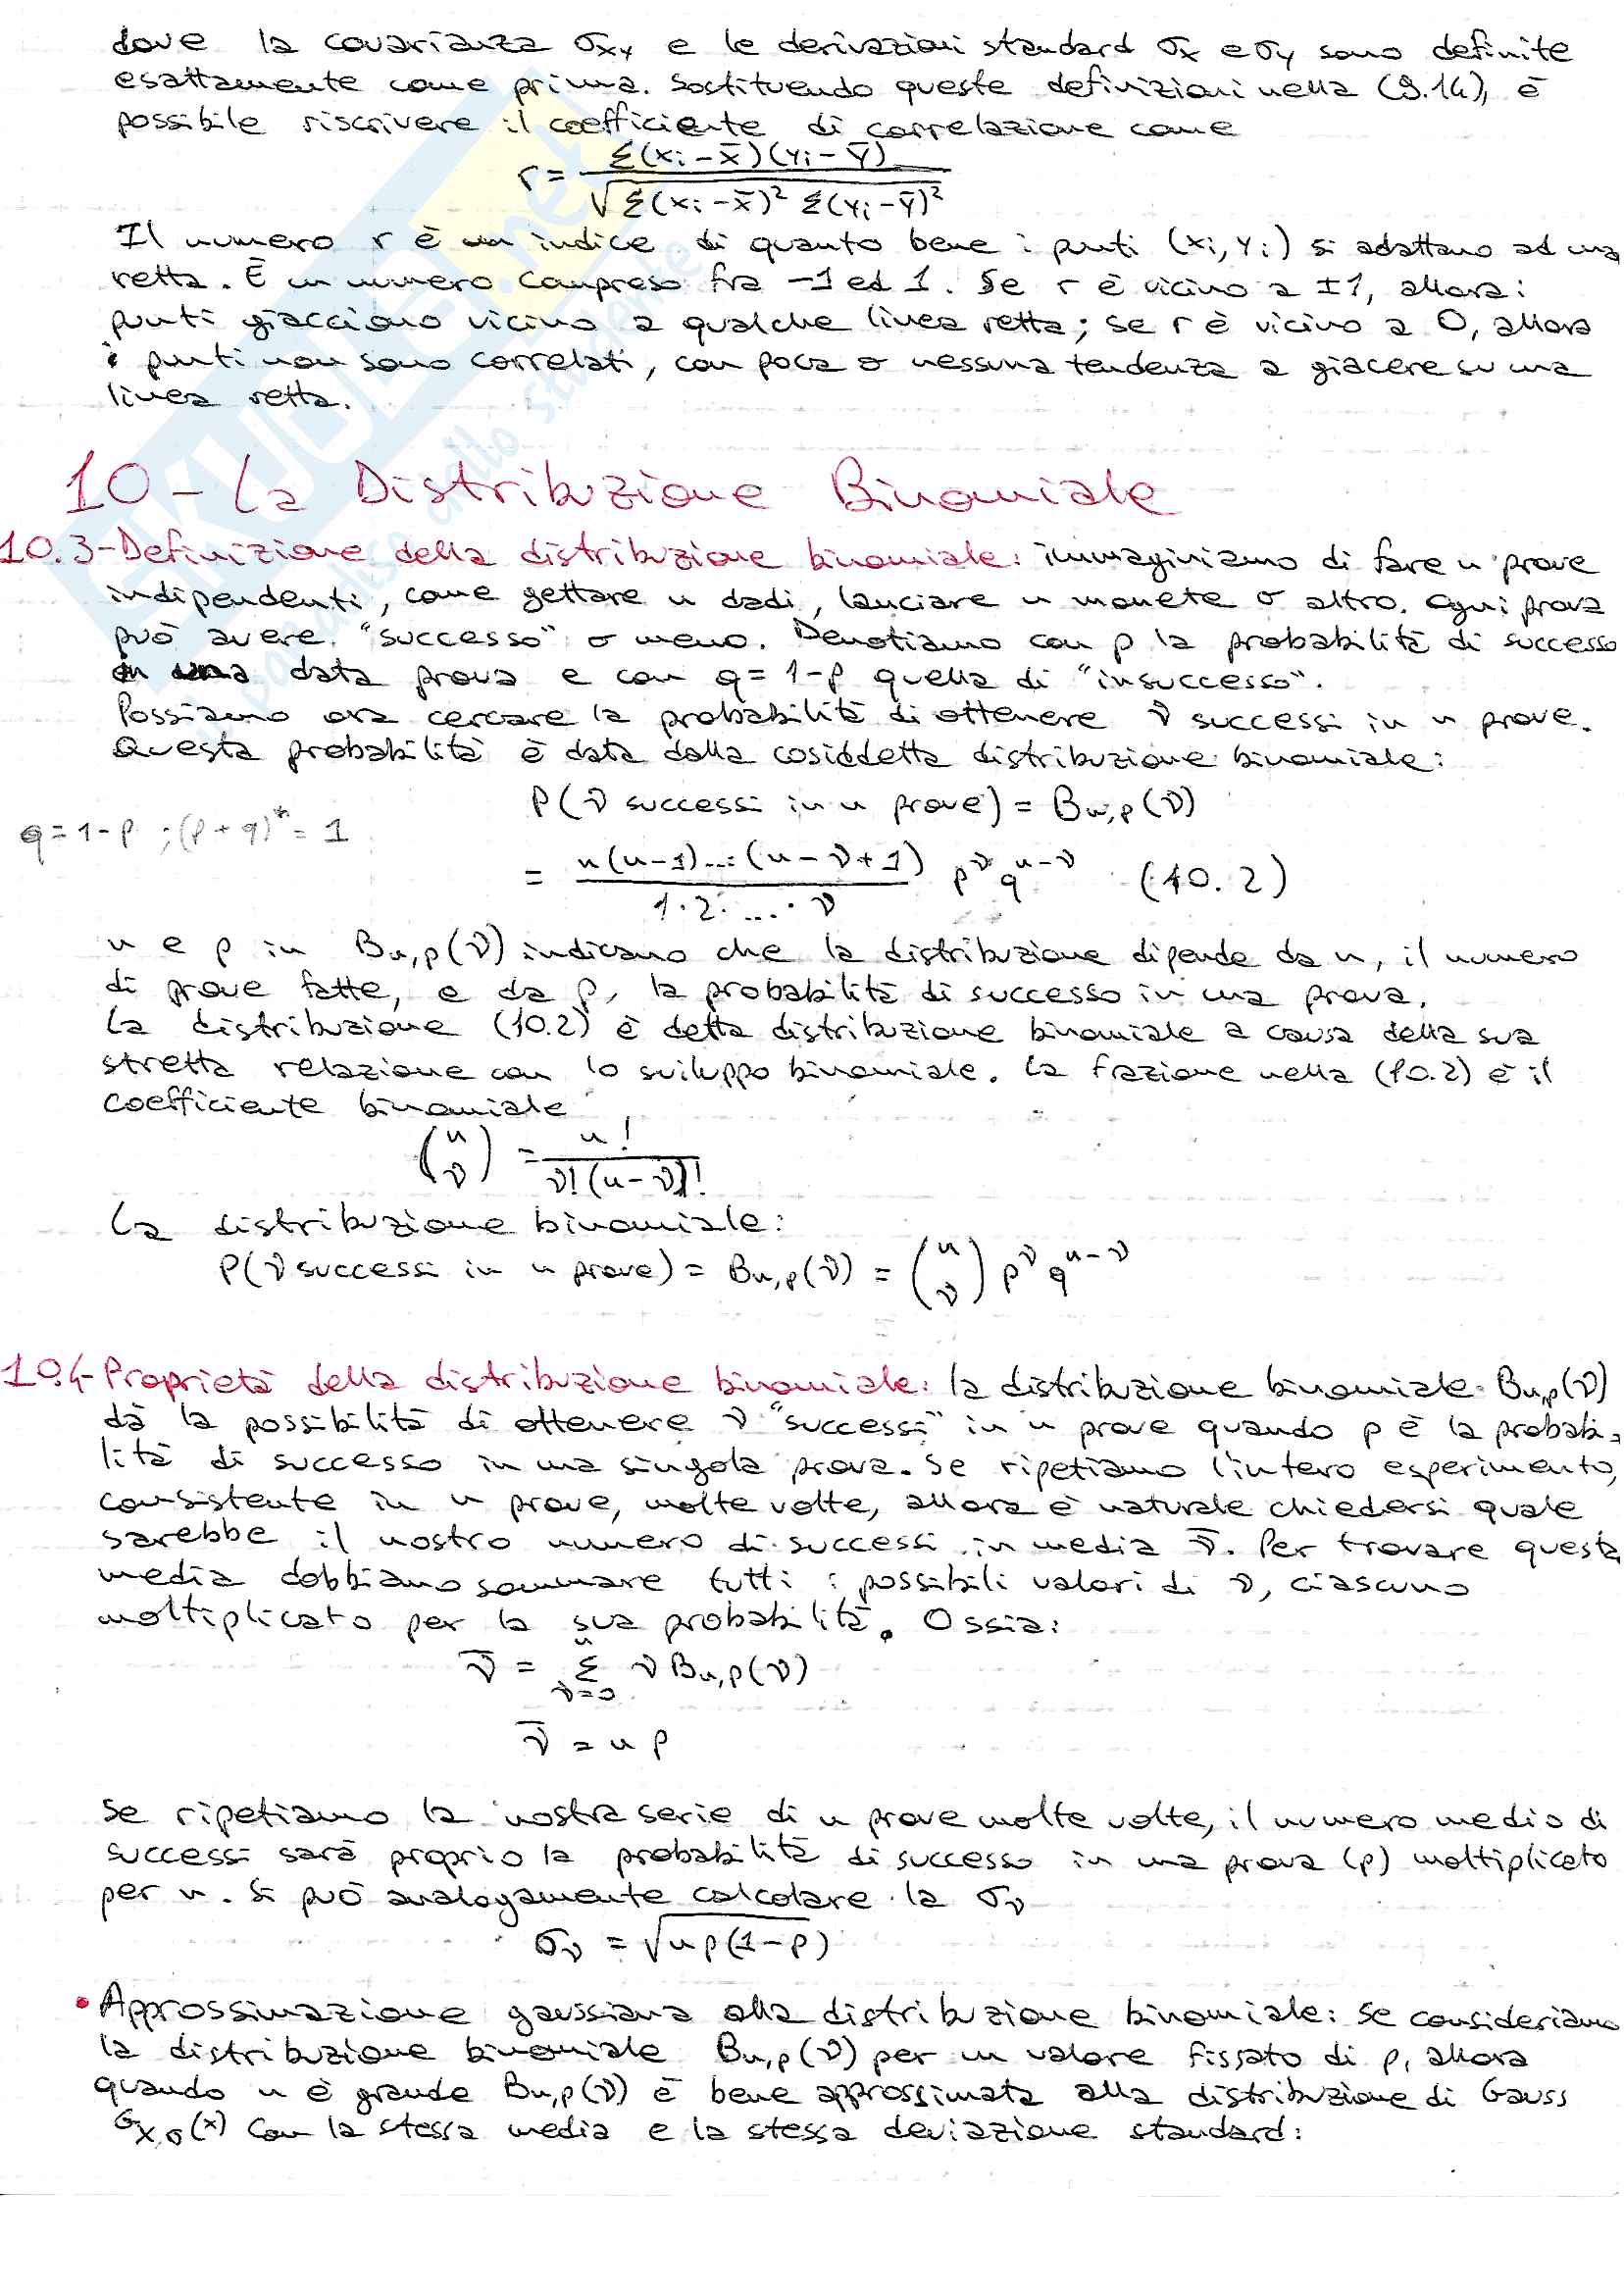 dove la covarianza σxy e le derivazioni standard σx e σy sono definite
esattamente come prima. Sostituendo queste definizioni nella (9.14), è
possibile riscrivere il coefficiente di correlazione come
r = Σ(xi - x̄)(yi - ȳ) / √Σ(xi - x̄)² Σ(yi - ȳ)²
Il numero r è un indice di quanto bene i punti (xi, yi) si adattano ad una
retta. È un numero compreso fra -1 ed 1. Se r è vicino a ±1, allora i
punti giacciono vicino a qualche linea retta; se r è vicino a 0, allora
i punti non sono correlati, con poca o nessuna tendenza a giacere su una
linea retta.
10 - La Distribuzione Binomiale
10.3 - Definizione della distribuzione binomiale: immaginiamo di fare n prove
indipendenti, come gettare n dadi, lanciare n monete o altro. Ogni prova
può avere "successo" o meno. Denotiamo con p la probabilità di successo
in una data prova e con q = 1-p quella di "insuccesso".
Possiamo ora cercare la probabilità di ottenere ν successi in n prove.
Questa probabilità è data dalla cosiddetta distribuzione binomiale:
P(ν successi in n prove) = Bn,p(ν)
q = 1-p ; (p+q)* = 1
= n(n-1)...(n-ν+1) / 1·2·...·ν p^ν q^n-ν (10.2)
n e p in Bn,p(ν) indicano che la distribuzione dipende da n, il numero
di prove fatte, e da p, la probabilità di successo in una prova.
La distribuzione (10.2) è detta distribuzione binomiale a causa della sua
stretta relazione con lo sviluppo binomiale. La frazione nella (10.2) è il
coefficiente binomiale
(n ν) = n! / ν!(n-ν)!
La distribuzione binomiale:
P(ν successi in n prove) = Bn,p(ν) = (n ν) p^ν q^n-ν
10.4 - Proprietà della distribuzione binomiale: la distribuzione binomiale Bn,p(ν)
dà la possibilità di ottenere ν "successi" in n prove quando p è la probabi=
lità di successo in una singola prova. Se ripetiamo l'intero esperimento,
consistente in n prove, molte volte, allora è naturale chiedersi quale
sarebbe il nostro numero di successi in media ν̄. Per trovare questa
media dobbiamo sommare tutti i possibili valori di ν, ciascuno
moltiplicato per la sua probabilità. Ossia:
ν̄ = Σ(ν=0, n) ν Bn,p(ν)
ν̄ = n p
Se ripetiamo la nostra serie di n prove molte volte, il numero medio di
successi sarà proprio la probabilità di successo in una prova (p) moltiplicato
per n. Si può analogamente calcolare la σν
σν = √np(1-p)
• Approssimazione gaussiana alla distribuzione binomiale: se consideriamo
la distribuzione binomiale Bn,p(ν) per un valore fissato di p, allora
quando n è grande Bn,p(ν) è bene approssimata alla distribuzione di Gauss
Gx,σ(x) con la stessa media e la stessa deviazione standard: